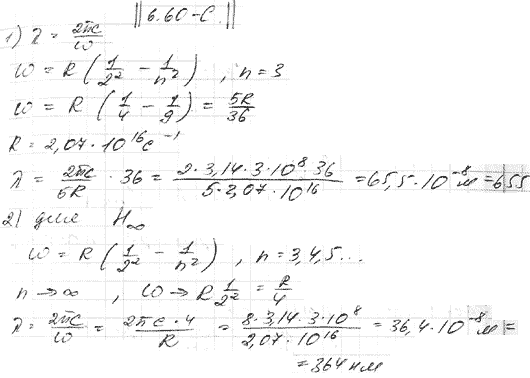 ||6.60-С.||
1) λ = 2πc/ω
ω = R (1/2² - 1/n²) , n = 3
ω = R (1/4 - 1/9) = 5R/36
R = 2,07 · 10¹⁶ c⁻¹
λ = 2πc/5R · 36 = 2 · 3,14 · 3 · 10⁸ · 36 / 5 · 2,07 · 10¹⁶ = 65,5 · 10⁻⁸ м = 655
2) для H∞
ω = R (1/2² - 1/n²) , n = 3,4,5...
n → ∞ , ω → R 1/2² = R/4
λ = 2πc/ω = 2πc · 4/R = 8 · 3,14 · 3 · 10⁸ / 2,07 · 10¹⁶ = 36,4 · 10⁻⁸ м =
= 364 нм